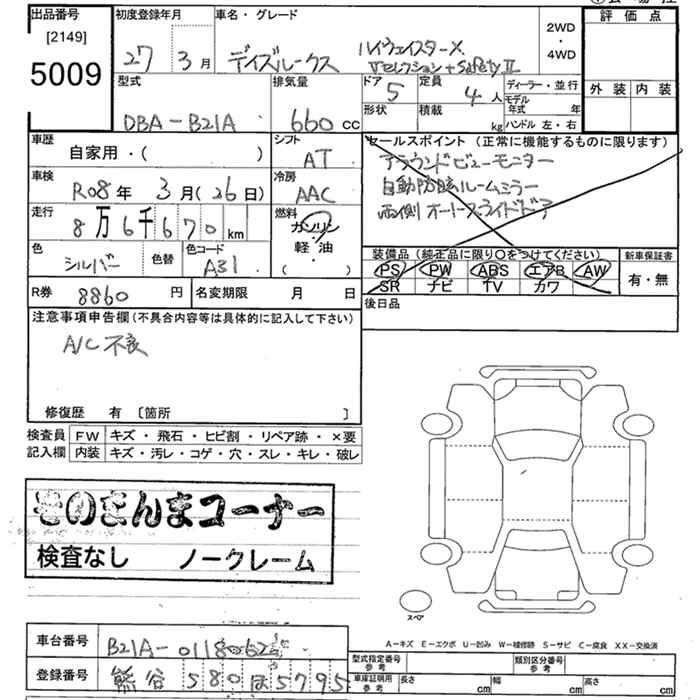 出品番号
[2149]
5009
初度登録年月
27年 3月
車名・グレード
デイズルークス ハイウェイスターX
Vセレクション+SafetyⅡ
2WD
・
4WD
評価点
外装 内装
型式
DBA-B21A
排気量
660cc
ドア 5
定員 4人
形状
積載 kg
ディーラー・並行
モデル年式 年
ハンドル 左・右
車歴
自家用・( )
シフト
AT
車検
R08年 3月(26日)
冷房
AAC
走行
8万6千670km
燃料
ガソリン
軽・油
( )
色
シルバー
色替
色コード
A31
R券 8860円
名変期限 月 日
セールスポイント(正常に機能するものに限ります)
アラウンドビューモニター
自動防眩ルームミラー
両側オートスライドドア
装備品(純正品に限り○をつけてください)
PS PW ABS エアB AW
SR ナビ TV カワ
新車保証書
有・無
後日品
注意事項申告欄(不具合内容等は具体的に記入して下さい)
A/C不良
修復歴 有 〔箇所 〕
検査員 FW キズ・飛石・ヒビ割・リペア跡・×要
記入欄 内装 キズ・汚レ・コゲ・穴・スレ・キレ・破レ
そのまんまコーナー
検査なし ノークレーム
スペア
A-キズ E-エクボ U-凹み W-補修跡 S-サビ C-腐食 XX-交換済
車台番号
登録番号 熊谷 580 ほ 5795
型式指定番号 参考
類別区分番号 参考
車庫証明用 参考
長さ cm 幅 cm 高さ cm